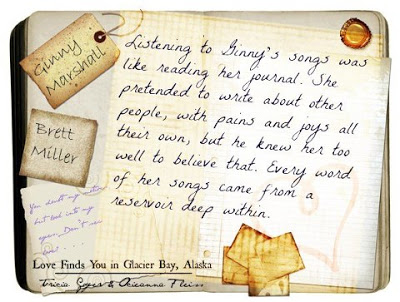 Ginny
Marshall
Brett
Miller
Listening to Ginny's songs was
like reading her journal. She
pretended to write about other
people, with pains and joys all
their own, but he knew her too
well to believe that. Every word
of her songs came from a
reservoir deep within.
You doubt my
but look into my
eyes. Don't
Love Finds You in Glacier Bay, Alaska
Tricia Goyer & Ocieanna Fleiss